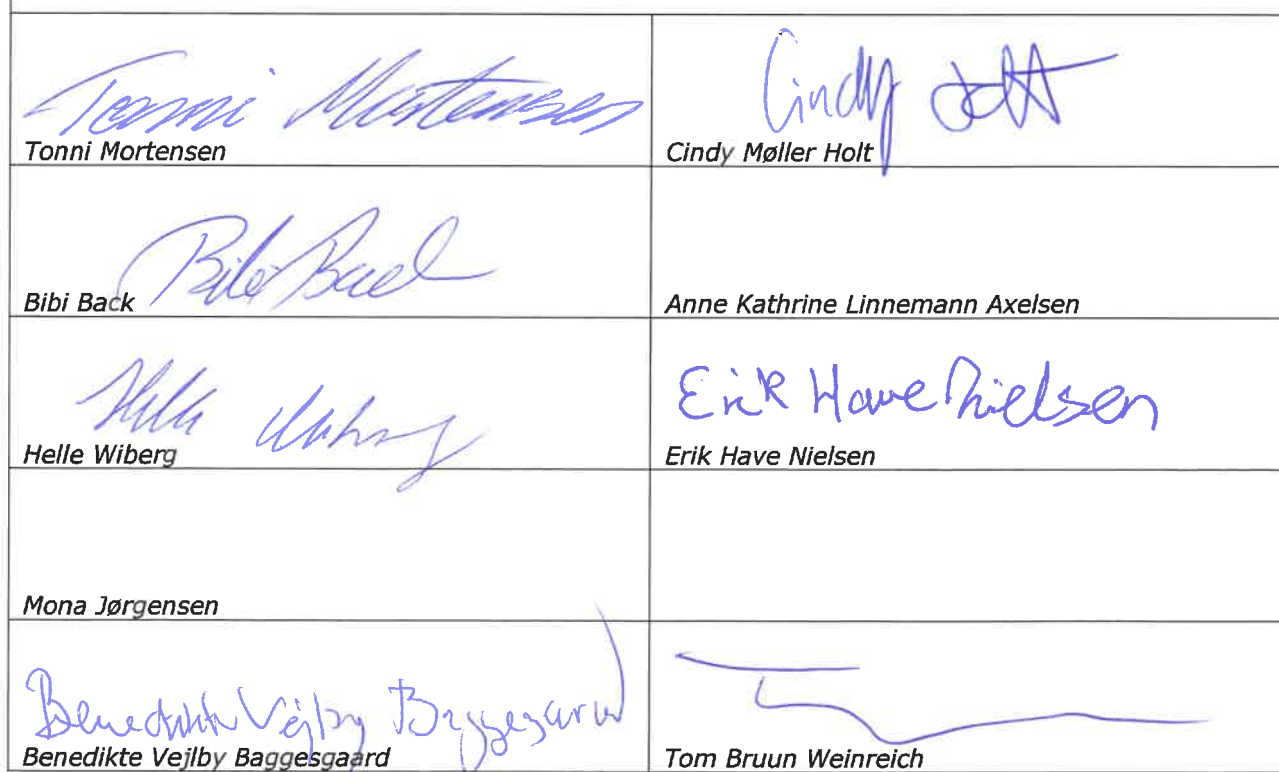 Tonni Mortensen Cindy Holt
Tonni Mortensen Cindy Møller Holt
Bibi Back
Bibi Back Anne Kathrine Linnemann Axelsen
Helle Wiberg Erik Have Nielsen
Helle Wiberg Erik Have Nielsen
Mona Jørgensen
Benedikte Vejlby Baggesgaard
Benedikte Vejlby Baggesgaard Tom Bruun Weinreich